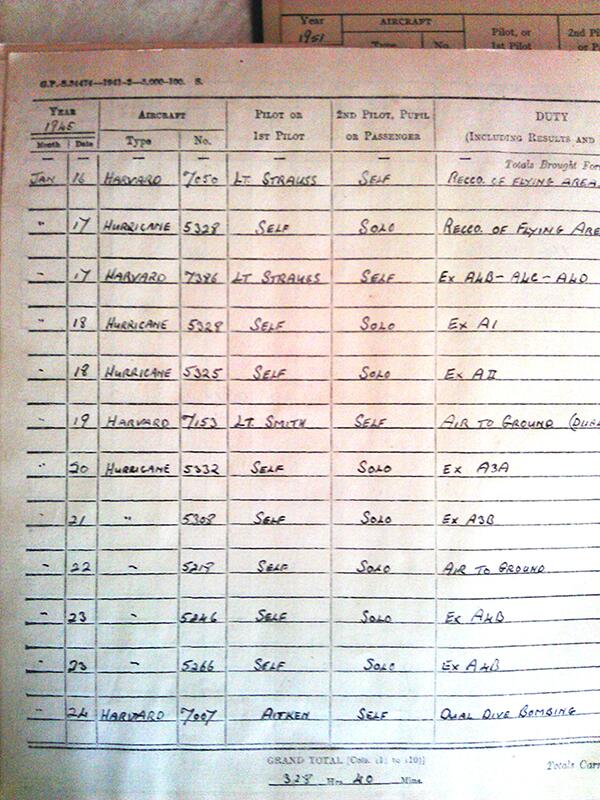 Year AIRCRAFT Pilot, or 2nd Pil
1951 Type No. 1st Pilot or Pa
G.P.-S.24474—1941-2—3,000-100. S.
YEAR AIRCRAFT PILOT OR 2ND PILOT, PUPIL DUTY
1945 1ST PILOT OR PASSENGER (INCLUDING RESULTS AND
Month Date Type No.
Totals Brought For
JAN 16 HARVARD 7050 LT. STRAUSS SELF RECCO. OF FLYING AREA.
" 17 HURRICANE 5328 SELF SOLO RECCO. OF FLYING ARE
" 17 HARVARD 7386 LT STRAUSS SELF EX A4B - A4C - A4D
" 18 HURRICANE 5328 SELF SOLO EX A1
" 18 HURRICANE 5325 SELF SOLO EX AII
" 19 HARVARD 7153 LT. SMITH SELF AIR TO GROUND (DUAL
" 20 HURRICANE 5332 SELF SOLO EX A3A
" 21 " 5308 SELF SOLO EX A3B
" 22 " 5219 SELF SOLO AIR TO GROUND
" 23 " 5246 SELF SOLO EX A4B
" 23 " 5266 SELF SOLO EX A4B
" 24 HARVARD 7007 AITKEN SELF DUAL DIVE BOMBING
GRAND TOTAL [Cols. (1) to (10)] Totals Carr
328 Hrs. 40 Mins.